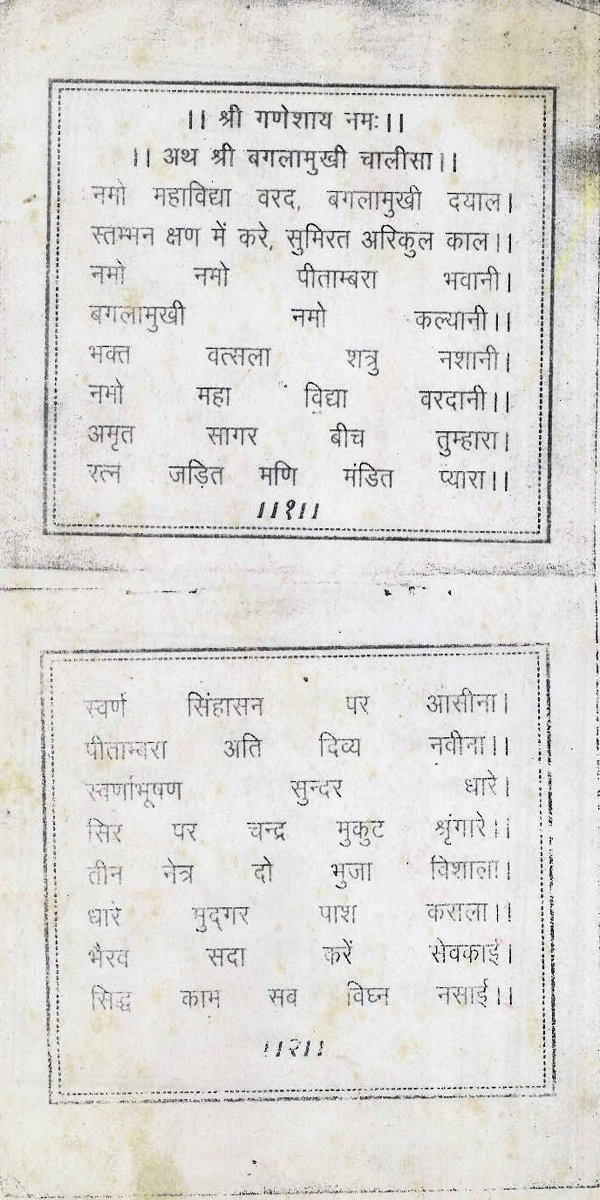 ।। श्री गणेशाय नमः।।
।। अथ श्री बगलामुखी चालीसा।।
नमो महाविद्या वरद, बगलामुखी दयाल।
स्तम्भन क्षण में करे, सुमिरत अरिकुल काल।।
नमो नमो पीताम्बरा भवानी।
बगलामुखी नमो कल्यानी।।
भक्त वत्सला शत्रु नशानी।
नमो महा विद्या वरदानी।।
अमृत सागर बीच तुम्हारा।
रत्न जड़ित मणि मंडित प्यारा।।
।।१।।
स्वर्ण सिंहासन पर आसीना।
पीताम्बरा अति दिव्य नवीना।।
स्वर्णाभूषण सुन्दर धारे।
सिर पर चन्द्र मुकुट श्रृंगारे।।
तीन नेत्र दो भुजा विशाला।
धारे मुद्गर पाश कराला।।
भैरव सदा करें सेवकाई।
सिद्ध काम सब विघ्न नसाई।।
।।२।।